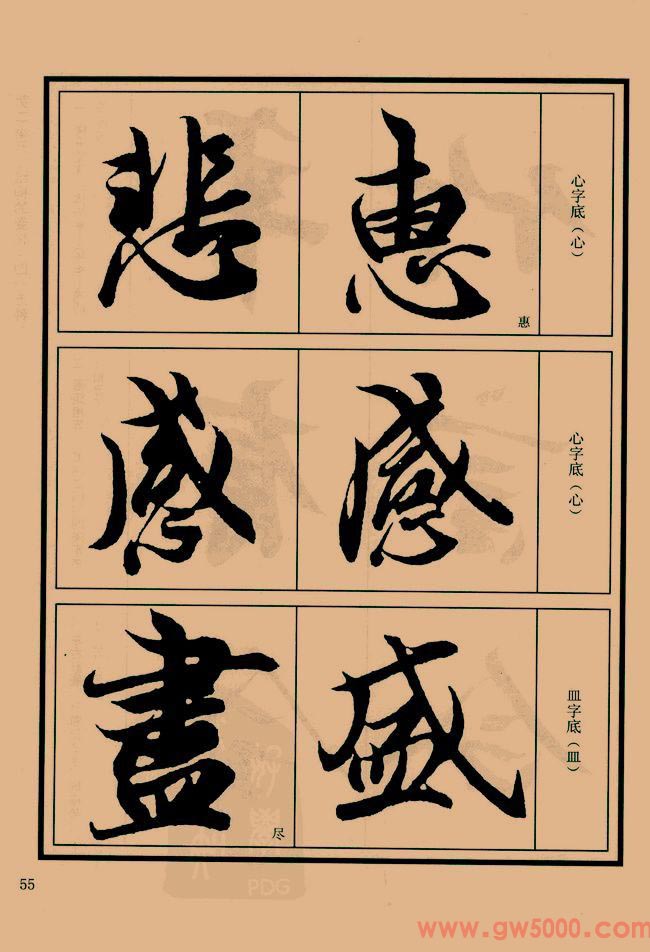 心字底（心）
惠
惠
悲
心字底（心）
感
感
皿字底（皿）
盛
盡
尽
55
PDG
www.gw5000.com